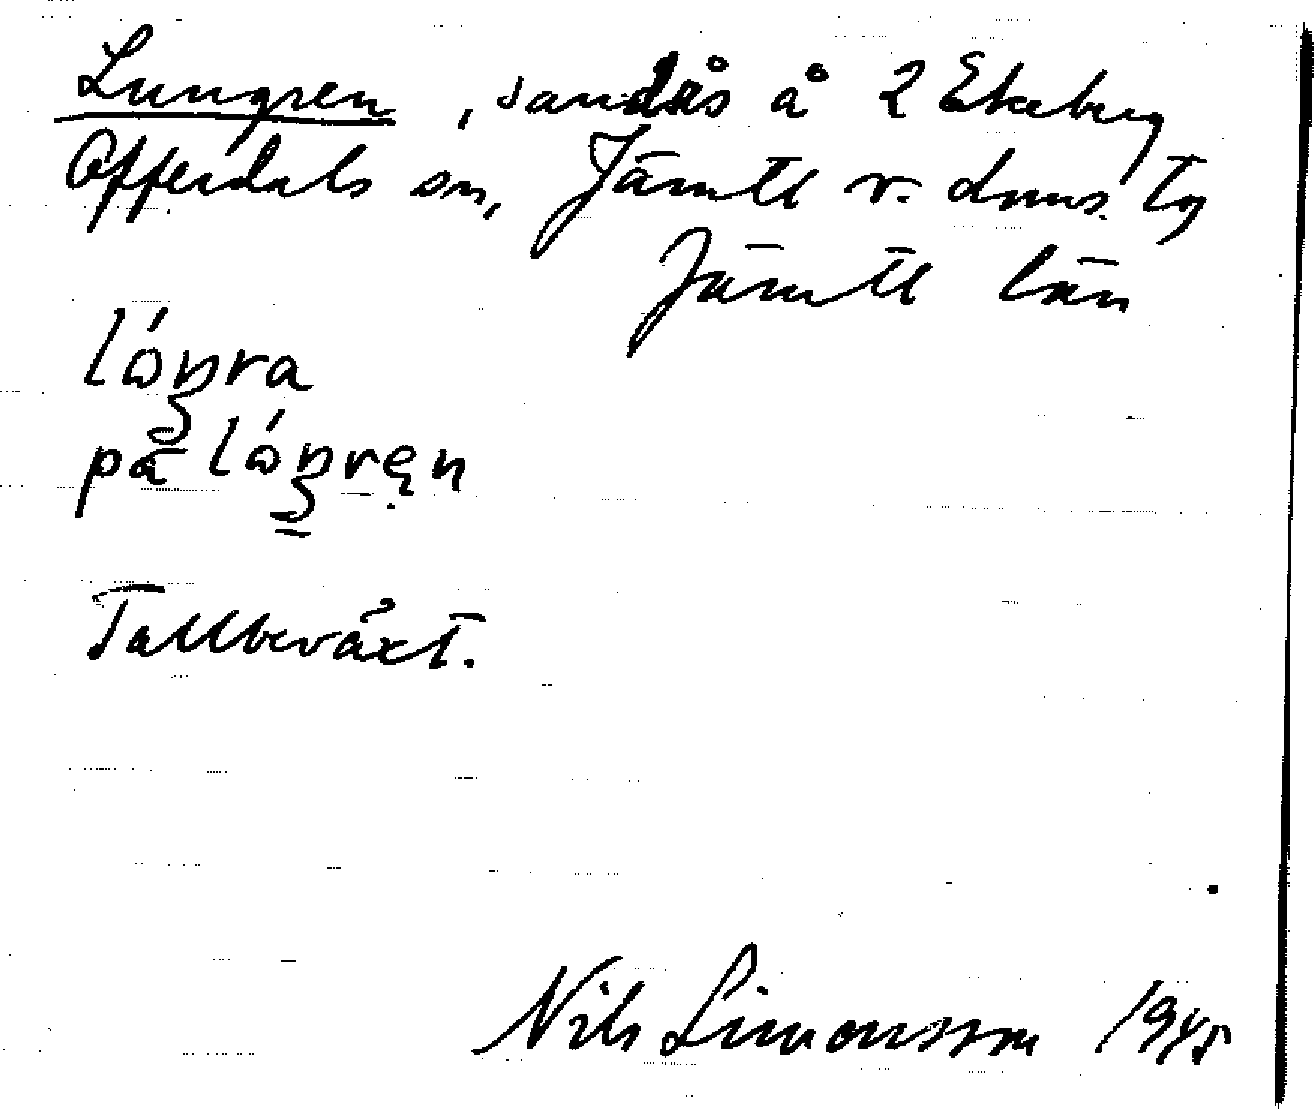 Lungren, sandås å 2 Ekeberg
Offerdals sn, Jämtl v. doms. tg
Jämtl län
lǿŋra
på lǿŋręn
Tallbeväxt.
Nils Simonsson 1945